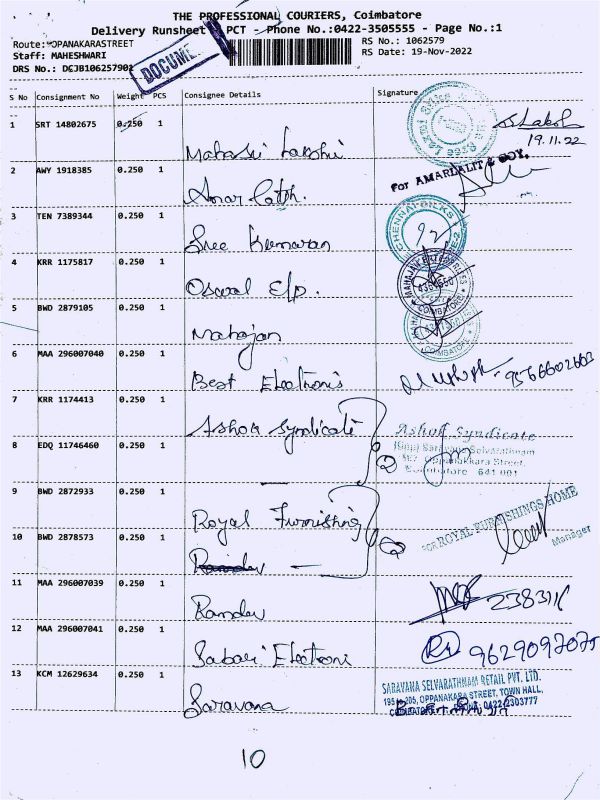 THE PROFESSIONAL COURIERS, Coimbatore
Delivery Runsheet PCT - Phone No.:0422-3505555 - Page No.:1
Route: OPANAKARASTREET
RS No.: 1062579
Staff: MAHESHWARI
RS Date: 19-Nov-2022
DRS No.: DCJB106257901
DOCUME
S No Consignment No Weight PCS Consignee Details Signature
1 SRT 14802675 0.250 1
19.11.22
2 AWY 1918385 0.250 1
For AMARLALIT & COY.
3 TEN 7389344 0.250 1 Sree Kumaran
CHENNAI SILKS
4 KRR 1175817 0.250 1 Oswal E/p.
MAHAJAN ENTERPRISES
COIMBATORE
5 BWD 2879105 0.250 1 Mahajan
COIMBATORE
6 MAA 296007040 0.250 1 Best Electronis
9566602603
7 KRR 1174413 0.250 1 Ashok Syndicate
Ashok Syndicate
8 EDQ 11746460 0.250 1
Oppanakkara Street,
Coimbatore 641 001
9 BWD 2872933 0.250 1 Royal Furnishing
FOR ROYAL FURNISHINGS HOME
Manager
10 BWD 2878573 0.250 1
11 MAA 296007039 0.250 1 Ramdev
12 MAA 296007041 0.250 1 Sabari Electroni
9629097075
13 KCM 12629634 0.250 1 Saravana
SARAVANA SELVARATHNAM RETAIL PVT. LTD.
OPPANAKARA STREET, TOWN HALL,
0422-2303777
10